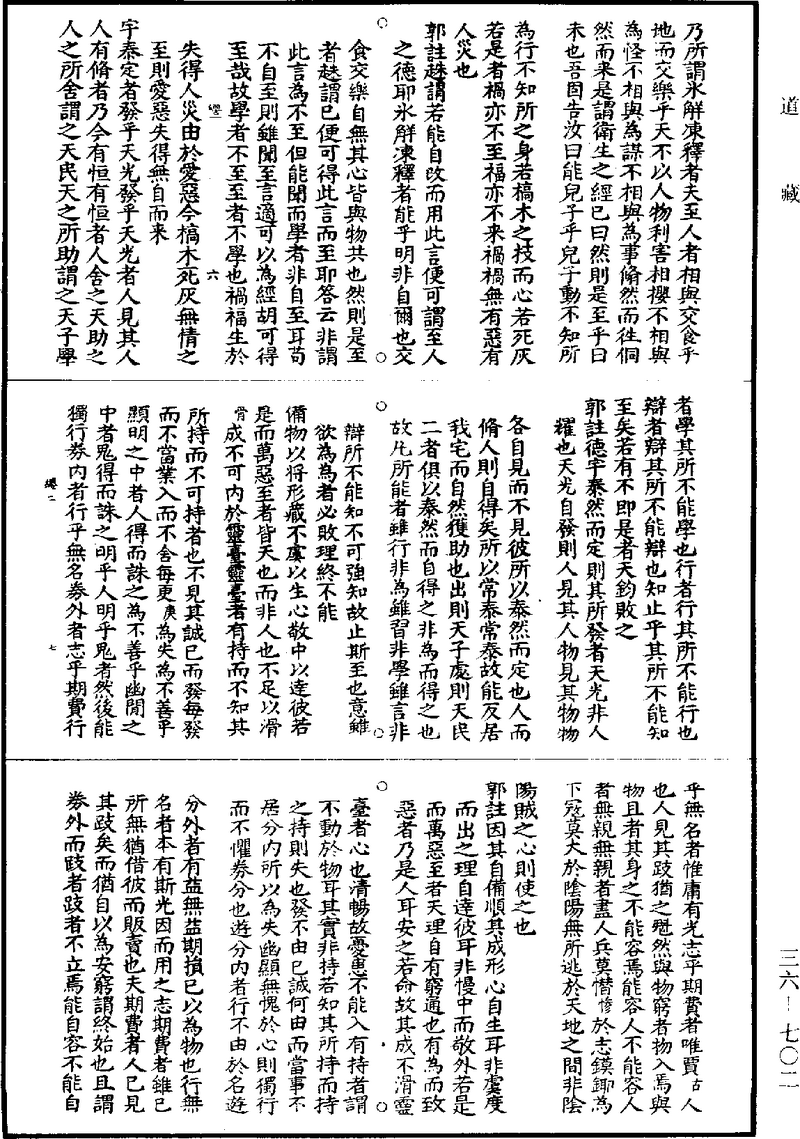 道藏
乃所謂氷解凍釋者夫至人者相與交食乎
地而交樂乎天不以人物利害相攖不相與
為怪不相與為謀不相與為事翛然而徃侗
然而来是謂衛生之經已曰然則是至乎曰
未也吾固告汝曰能兒子乎兒子動不知所
為行不知所之身若槁木之枝而心若死灰
若是者禍亦不至福亦不来禍福無有惡有
人災也
郭註趎謂若能自改而用此言便可謂至人
之德耶氷解凍釋者能乎明非自爾也交
食交樂自無其心皆與物共也然則是至
者趎謂已便可得此言而至耶荅云非謂
此言為不至但能聞而學者非自至耳苟
不自至則雖聞至言適可以為經胡可得
至哉故學者不至至者不學也禍福生於
六
失得人災由於愛惡今槁木死灰無情之
至則愛惡失得無自而来
宇泰定者發乎天光發乎天光者人見其人
人有脩者乃今有恒有恒者人舍之天助之
人之所舍謂之天民天之所助謂之天子學
者學其所不能學也行者行其所不能行也
辯者辯其所不能辯也知止乎其所不能知
至矣若有不即是者天鈞敗之
郭註德宇泰然而定則其所發者天光非人
耀也天光自發則人見其人物見其物物
各自見而不見彼所以泰然而定也人而
脩人則自得矣所以常泰常泰故能反居
我宅而自然獲助也出則天子處則天民
二者俱以泰然而自得之非為而得之也
故凡所能者雖行非為雖習非學雖言非
辯所不能知不可強知故止斯至也意雖
欲為為者必敗理終不能
備物以将形藏不虞以生心敬中以達彼若
是而萬惡至者皆天也而非人也不足以滑
骨成不可内於靈臺靈臺者有持而不知其
所持而不可持者也不見其誠已而發每發
而不當業入而不舍每更庚為失為不善乎
顯明之中者人得而誅之為不善乎幽閒之
中者鬼得而誅之明乎人明乎鬼者然後能
獨行券内者行乎無名券外者志乎期費行
七
乎無名者惟庸有光志乎期費者唯賈古人
也人見其跂猶之魁然與物窮者物入焉與
物且者其身之不能容焉能容人不能容人
者無親無親者盡人兵莫憯惨於志鏌鋣為
下宼莫大於陰陽無所逃於天地之間非陰
陽賊之心則使之也
郭註因其自備順其成形心自生耳非虞度
而出之理自達彼耳非慢中而敬外若是
而萬惡至者天理自有窮通也有為而致
惡者乃是人耳安之若命故其成不滑靈
臺者心也清暢故憂患不能入有持者謂
不動於物耳其實非持若知其所持而持
之持則失也發不由已誠何由而當事不
居分内所以為失幽顯無愧於心則獨行
而不懼券分也遊分内者行不由於名遊
分外者有益無益期損已以為物也行無
名者本有斯光因而用之志期費者雖已
所無猶借彼而販賣也夫期費者人已見
其跂矣而猶自以為安窮謂終始也且謂
券外而跂者跂者不立焉能自容不能自
三六－七〇二